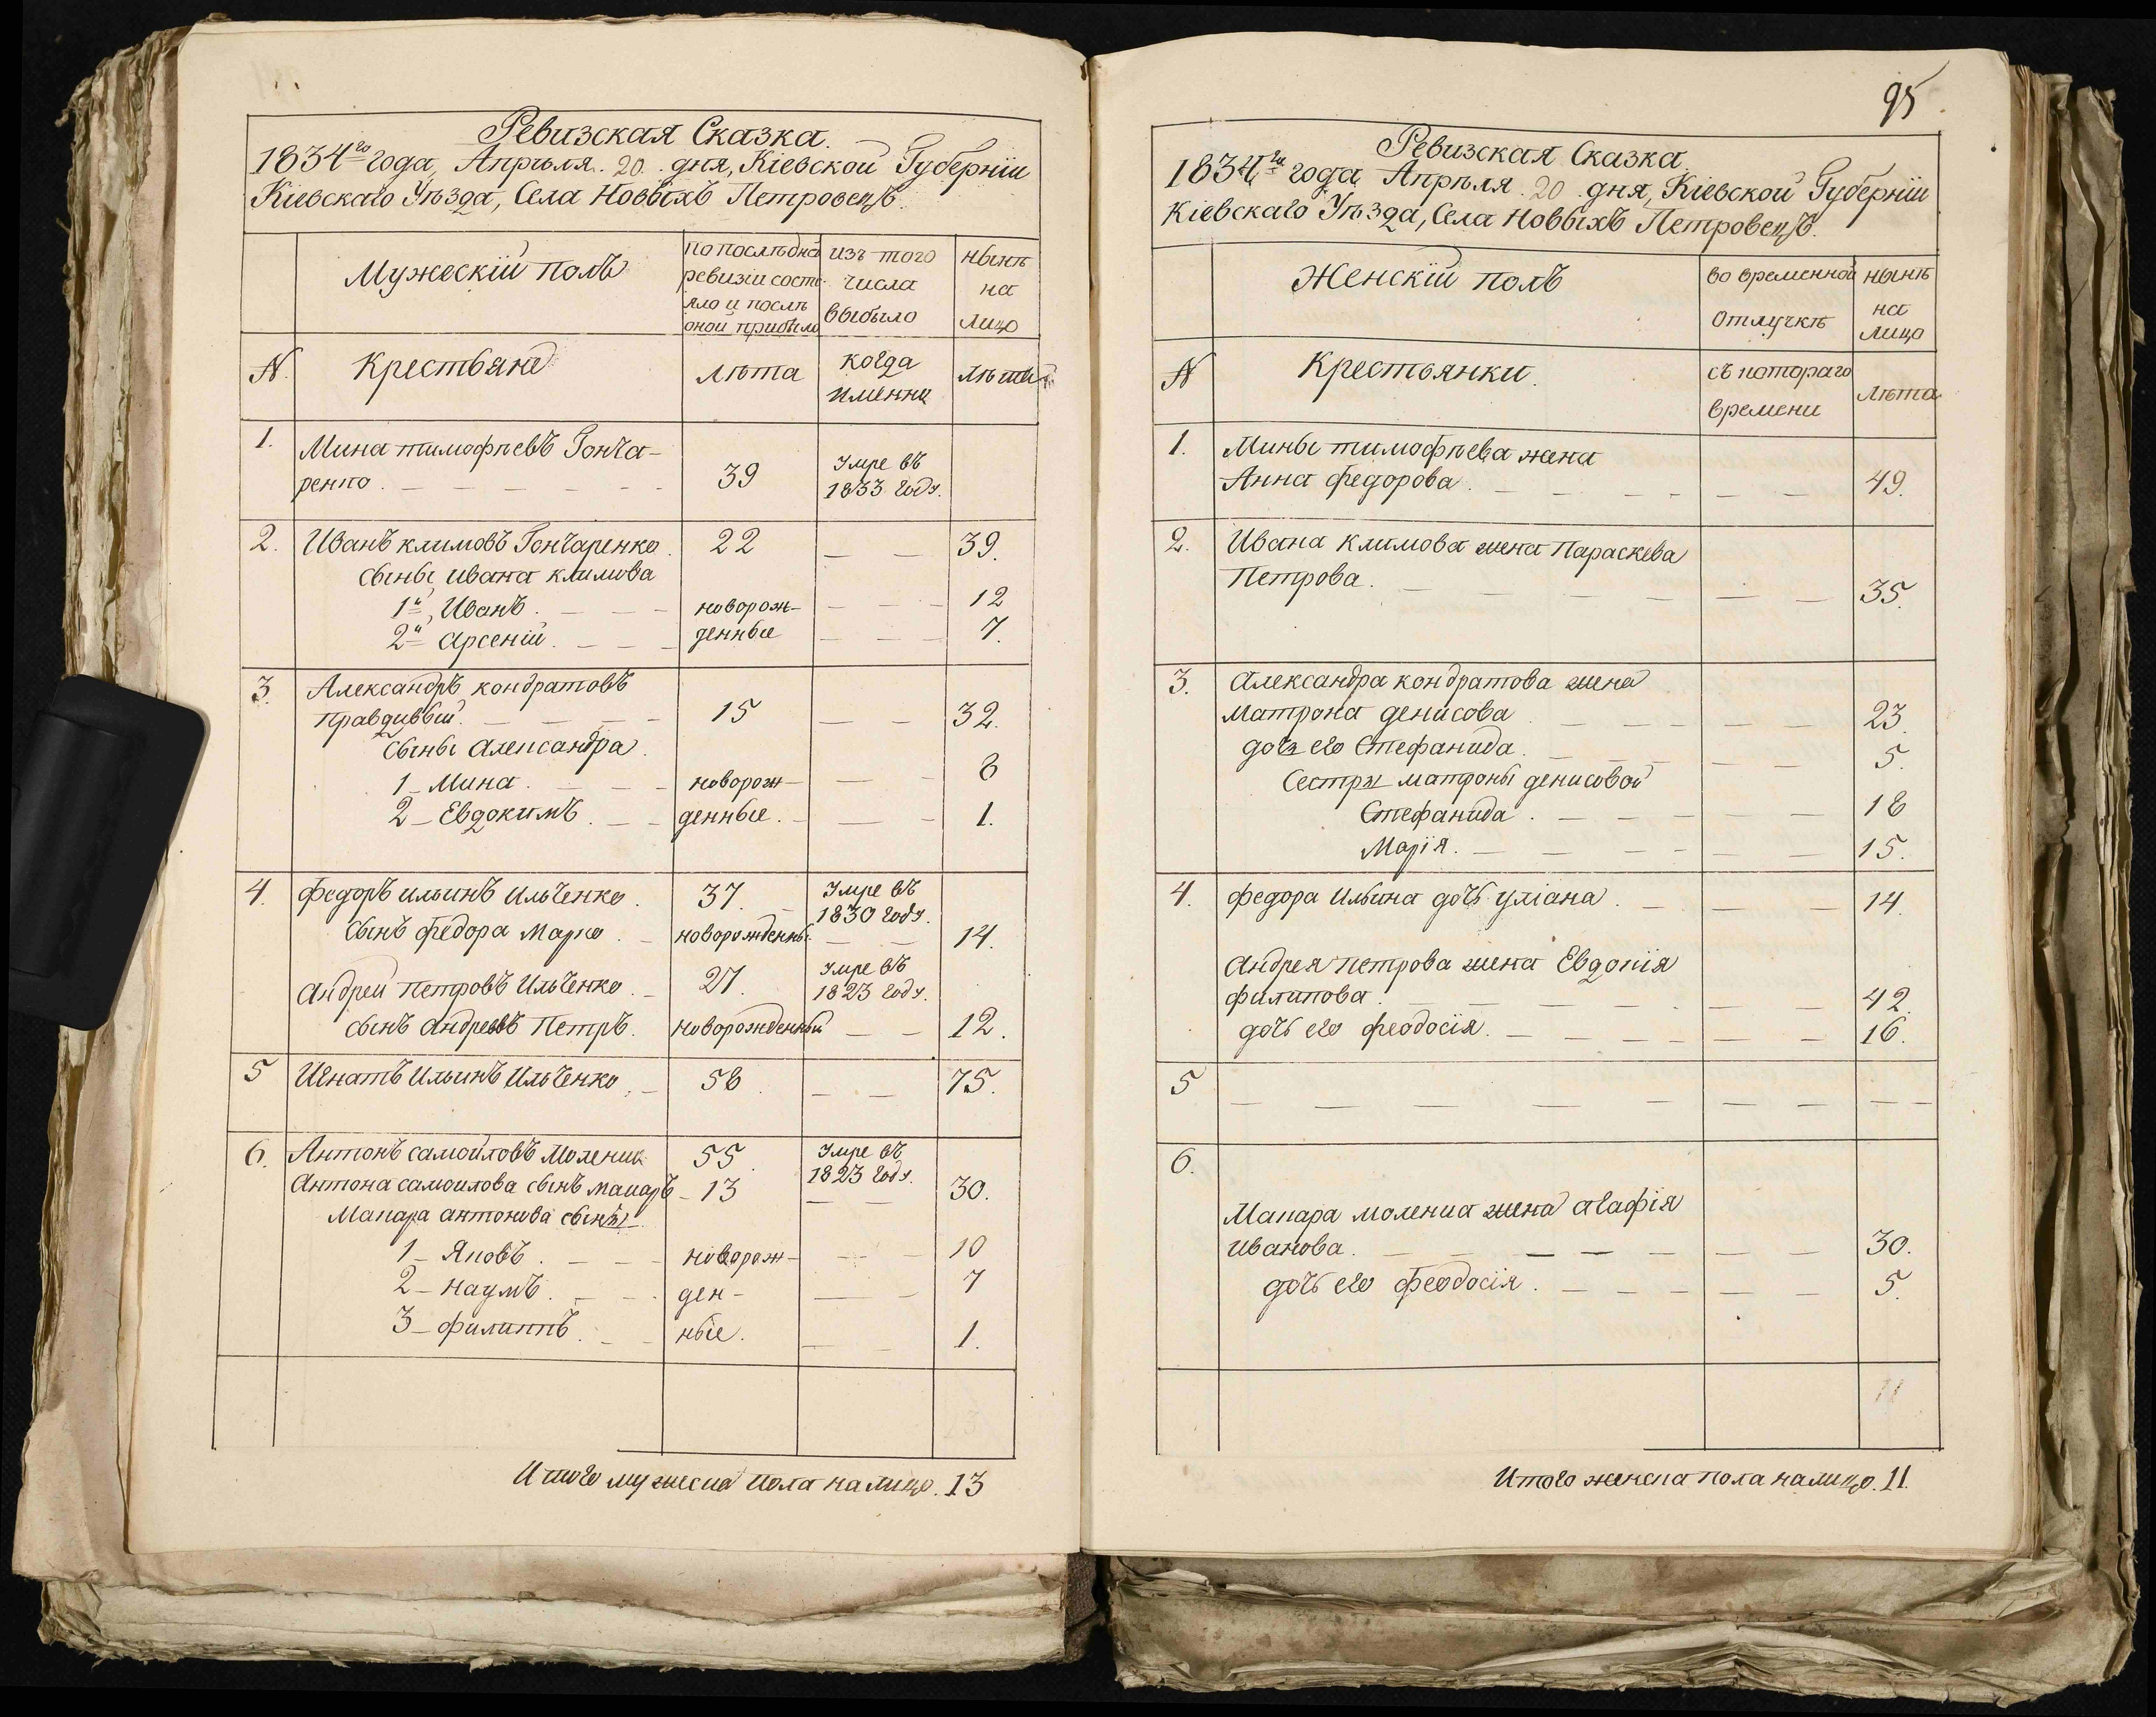 Ревизская Сказка.
1834го года, Апрѣля. 20. дня, Кіевской Губерніи
Кіевскаго Уѣзда, Села Новыхъ Петровецъ.
Мужескій полъ
по послѣдней
ревизіи состо-
яло и послѣ
оной прибыло
изъ того
числа
выбыло
нынѣ
на
лицо
N.
Крестьяне
лѣта
когда
именно
лѣта
1.
Мина тимофѣевъ Гонча-
ренко.
39
Умре въ
1833 году.
2.
Иванъ климовъ Гончаренко.
22
39.
сыны ивана климова
1й, Иванъ.
новорож-
12
2й Арсеній.
денные
7.
3.
Александръ кондратовъ
правдивый.
15
32.
сыны Александра.
1 Мина.
новорож-
8
2 Евдокимъ.
денные.
1.
4.
федоръ ильинъ Ильченко.
37.
Умре въ
1830 году.
сынъ федора Марко.
новорожденны
14.
андрей петровъ Ильченко.
27.
Умре въ
1823 году.
сынъ андреевъ Петръ.
новорожденный
12.
5
Игнатъ Ильинъ Ильченко.
58.
75.
6.
Антонъ самойловъ Моленик
55.
Умре въ
1823 году.
Антона самоилова сынъ макаръ
13
30.
Макара антонова сыны
1 Яковъ.
новорож-
10
2 наумъ.
ден-
7
3 филиппъ.
ные.
1.
Итого мужеска пола на лицо. 13
95
Ревизская Сказка
1834го года Апрѣля. 20 дня, Кіевской Губерніи
Кіевскаго Уѣзда, Села Новыхъ Петровецъ.
Женскій полъ
во временной
отлучкѣ
нынѣ
на
лицо
N
Крестьянки.
съ котораго
времени
лѣта
1.
Мины тимофѣева жена
Анна федорова.
49.
2.
Ивана климова жена Параскева
Петрова.
35.
3.
Александра кондратова жена
матрона денисова
23.
дочь его Стефанида.
5.
Сестры матроны денисовой
Стефанида.
18
Марія.
15.
4.
федора Ильина дочь уліана.
14.
андрея петрова жена Евдокія
филипова.
42.
дочь его феодосія.
16.
5
6.
Макара моленка жена агафія
иванова.
30.
дочь его феодосія.
5.
11
Итого женска пола налицо. 11.